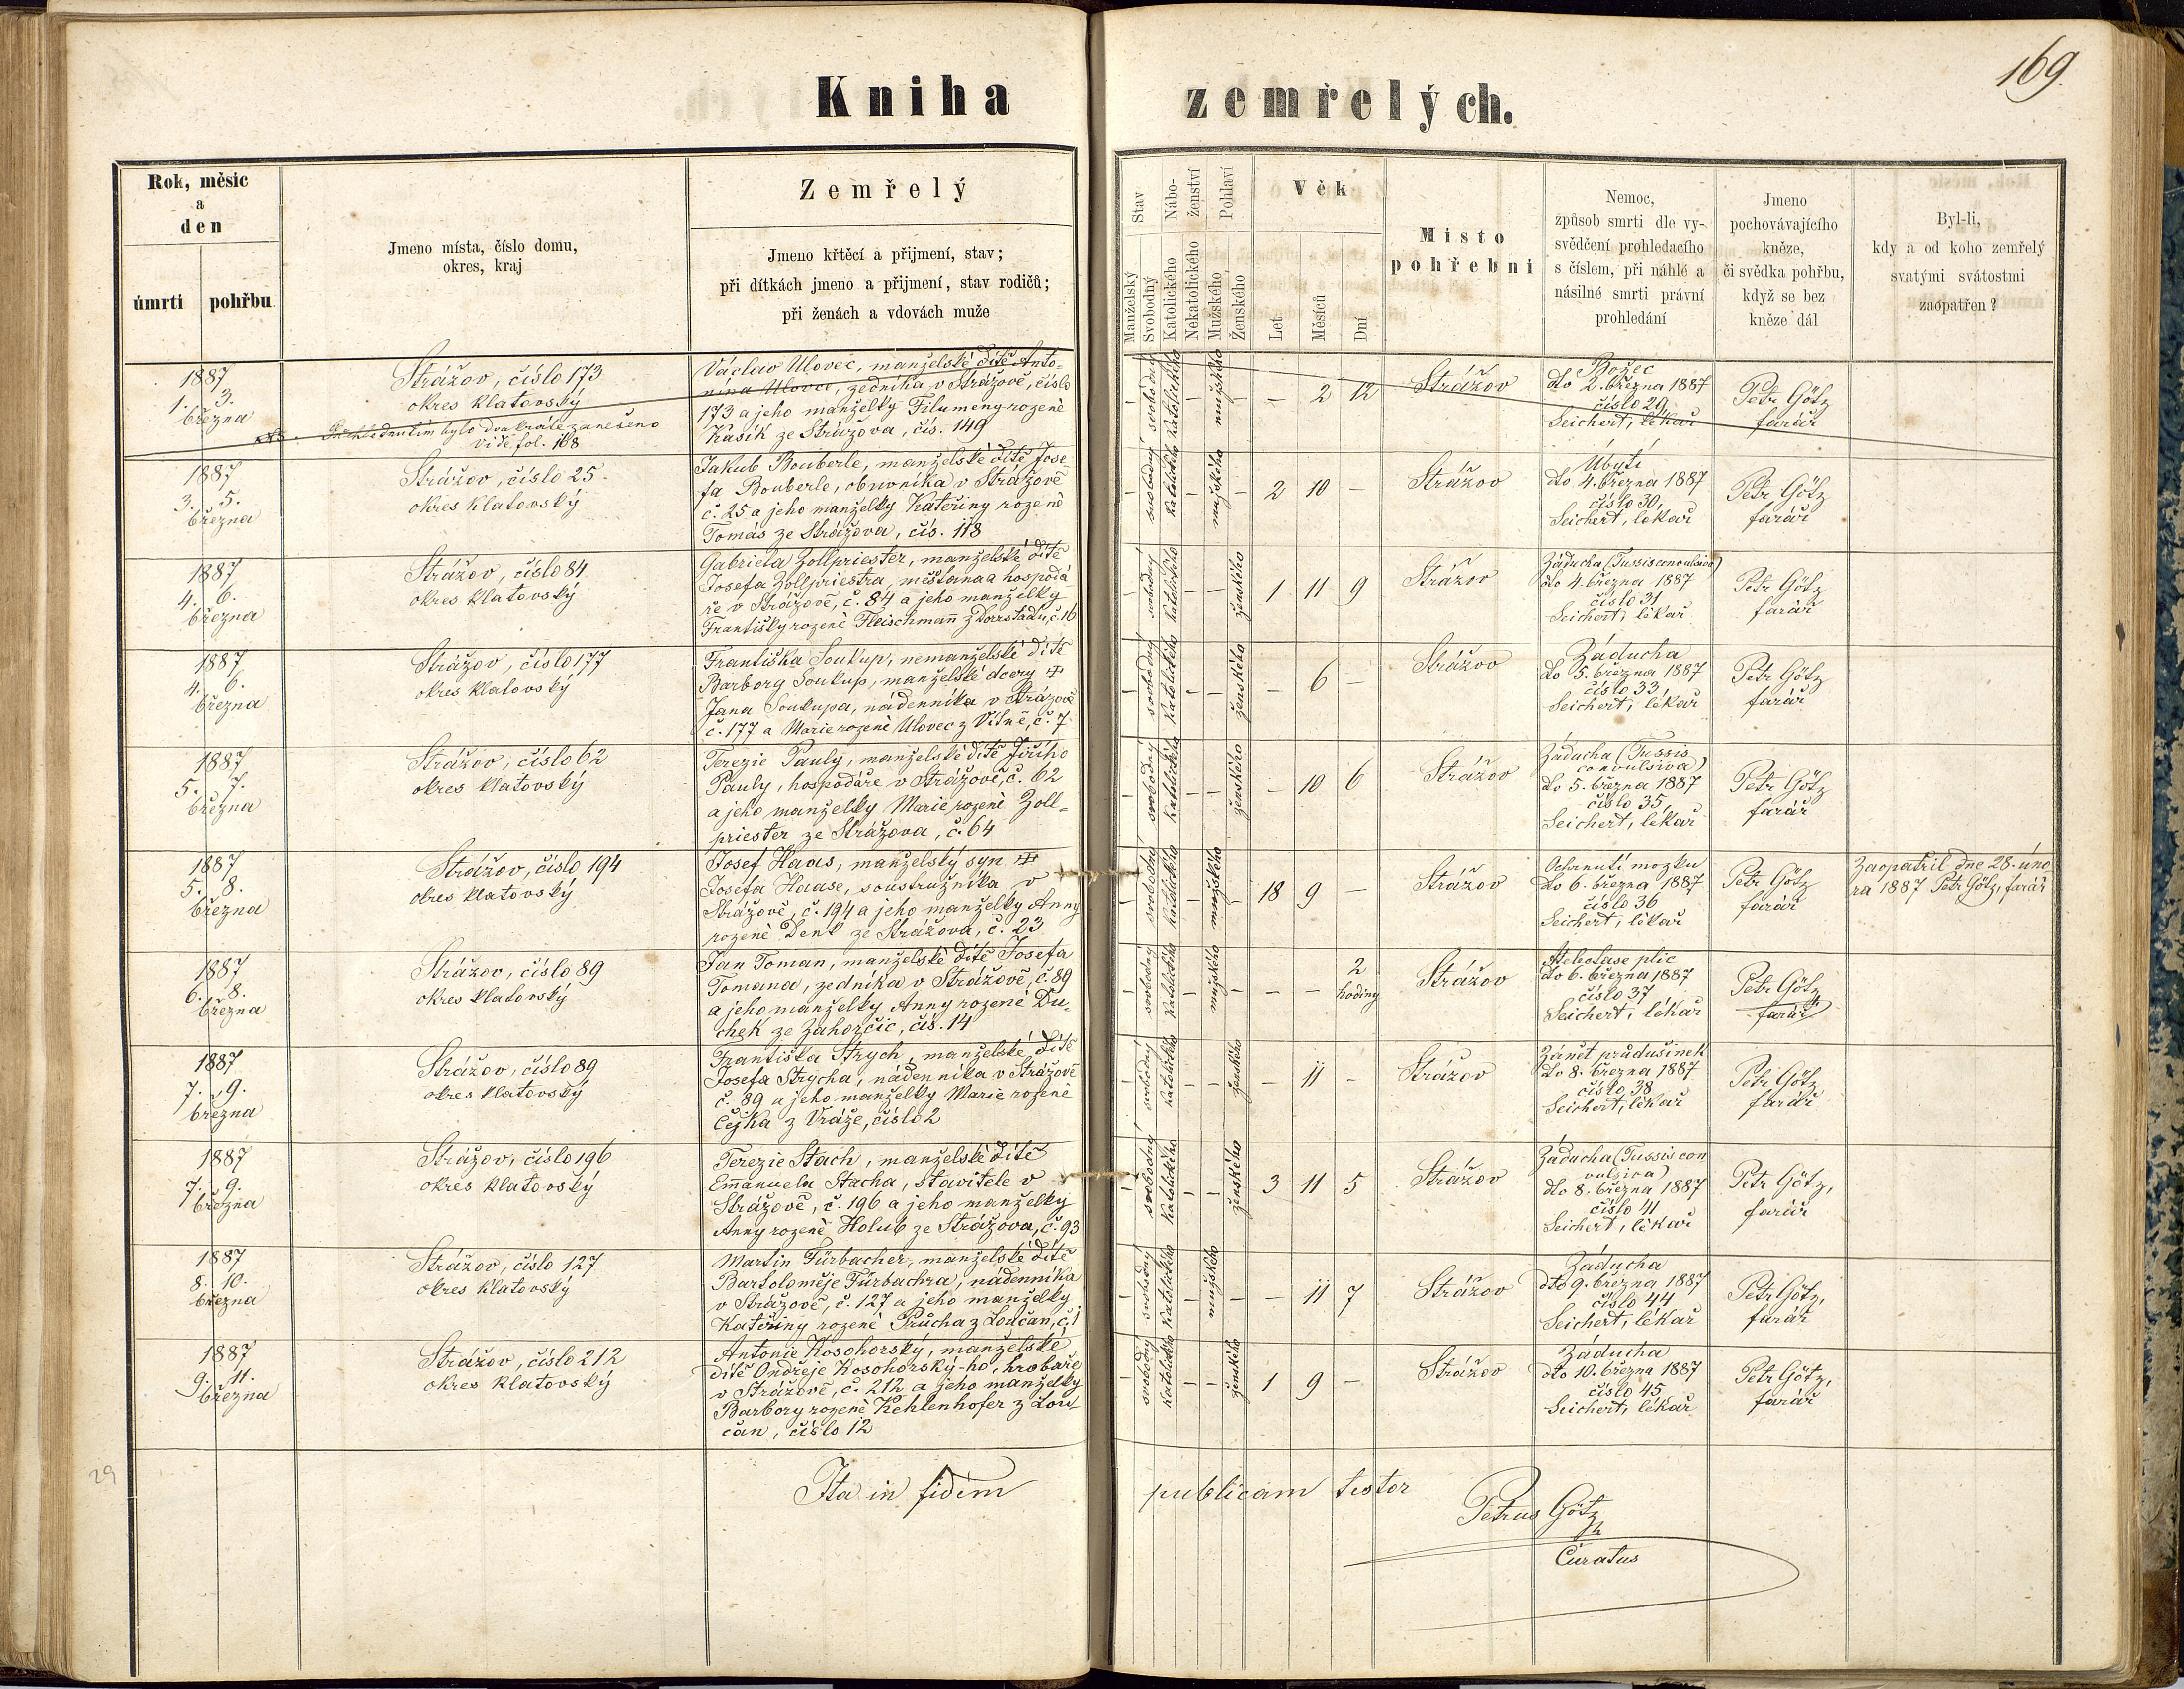 169.
Kniha zemřelých.
Rok, měsíc
a
den
úmrtí
pohřbu
Jmeno místa, číslo domu,
okres, kraj
Zemřelý
Jmeno křtěcí a přijmení, stav;
při dítkách jmeno a přijmení, stav rodičů;
při ženách a vdovách muže
Stav
Manželský
Svobodný
Nábo-
ženství
Katolického
Nekatolického
Pohlaví
Mužského
Ženského
Věk
Let
Měsíců
Dní
Místo
pohřební
Nemoc,
způsob smrti dle vy-
svědčení prohledacího
s číslem, při náhlé a
násilné smrti právní
prohledání
Jmeno
pochovávajícího
kněze,
či svědka pohřbu,
když se bez
kněze dál
Byl-li,
kdy a od koho zemřelý
svatými svátostmi
zaopatřen?
1887
1. 3.
března
Strážov, číslo 173
okres Klatovský
Přehlédnutím bylo dvakráte zaneseno
vide fol. 168
Václav Ulovec, manželské dítě Anto-
nína Ulovce, zedníka v Strážově, číslo
173 a jeho manželky Filumeny rozené
Kasík ze Strážova, čís. 149
– svobodný katolického – mužského – – 2 12
Strážov
Božec
dto 2. března 1887
číslo 29
Seichert, lékař
Petr Götz
farář
1887
3. 5.
března
Strážov, číslo 25
okres Klatovský
Jakub Bouberle, manželské dítě Jose-
fa Bouberle, obuvníka v Strážově
č. 25 a jeho manželky Kateřiny rozené
Tomás ze Strážova, čís. 118
– svobodný katolického – mužského – 2 10 –
Strážov
Úbytí
dto 4. března 1887
číslo 30,
Seichert, lékař
Petr Götz
farář
1887
4. 6.
března
Strážov, číslo 84
okres Klatovský
Gabriela Zollpriester, manželské dítě
Josefa Zollpriestra, měšťana a hospodá-
ře v Strážově, č. 84 a jeho manželky
Františky rozené Fleischmann z Dorrstadu, č. 16
– svobodný katolického – – ženského 1 11 9
Strážov
Záducha (Tussis convulsiva)
dto 4. března 1887
číslo 31
Seichert, lékař
Petr Götz
farář
1887
4. 6.
března
Strážov, číslo 177
okres Klatovský
Františka Soukup, nemanželské dítě
Barbory Soukup, manželské dcery ‡
Jana Soukupa, nádenníka v Strážově
č. 177 a Marie rozené Ulovec z Vítně, č. 7
– svobodný katolického – – ženského – 6 –
Strážov
Záducha
dto 5. března 1887
číslo 33,
Seichert, lékař
Petr Götz
farář
1887
5. 7.
března
Strážov, číslo 62
okres Klatovský
Terezie Pauly, manželské dítě Jiřího
Pauly, hospodáře v Strážově, č. 62
a jeho manželky Marie rozené Zoll-
priester ze Strážova, č. 64
– svobodný katolického – – ženského – 10 6
Strážov
Záducha (Tussis
convulsiva)
dto 5. března 1887
číslo 35,
Seichert, lékař
Petr Götz
farář
1887
5. 8.
března
Strážov, číslo 194
okres Klatovský
Josef Haas, manželský syn ‡
Josefa Haase, soustružníka v
Strážově, č. 194 a jeho manželky Anny
rozené Denk ze Strážova, č. 23
– svobodný katolického – mužského – 18 9 –
Strážov
Ochrnutí mozku
dto 6. března 1887
číslo 36
Seichert, lékař
Petr Götz
farář
Zaopatřil dne 28. úno-
ra 1887 Petr Götz, farář
1887
6. 8.
března
Strážov, číslo 89
okres Klatovský
Jan Toman, manželské dítě Josefa
Tomana, zedníka v Strážově, č. 89
a jeho manželky Anny rozené Du-
chek ze Zahorčic, čís. 14
– svobodný katolického – mužského – – – 2
hodiny
Strážov
Atelectase plic
dto 6. března 1887
číslo 37
Seichert, lékař
Petr Götz
farář
1887
7. 9.
března
Strážov, číslo 89
okres Klatovský
Františka Strych, manželské dítě
Josefa Strycha, nádenníka v Strážově
č. 89 a jeho manželky Marie rozené
Čejka z Vráže, číslo 2
– svobodný katolického – – ženského – 11 –
Strážov
Zánět průdušinek
dto 8. března 1887
číslo 38
Seichert, lékař
Petr Götz,
farář
1887
7. 9.
března
Strážov, číslo 196
okres Klatovský
Terezie Stach, manželské dítě
Emanuela Stacha, stavitele v
Strážově, č. 196 a jeho manželky
Anny rozené Holub ze Strážova, č. 93
– svobodný katolického – – ženského 3 11 5
Strážov
Záducha (Tussis con
vulsiva)
dto 8. března 1887
číslo 41
Seichert, lékař
Petr Götz,
farář
1887
8. 10.
března
Strážov, číslo 127
okres Klatovský
Martin Fürbacher, manželské dítě
Bartoloměje Fürbachra, nádenníka
v Strážově, č. 127 a jeho manželky
Kateřiny rozené Průcha z Loučan, č. 1
– svobodný katolického – mužského – – 11 7
Strážov
Záducha
dto 9. března 1887
číslo 44
Seichert, lékař
Petr Götz,
farář
1887
9. 11.
března
Strážov, číslo 212
okres Klatovský
Antonie Kosohorský, manželské
dítě Ondřeje Kosohorský-ho, hrobaře
v Strážově, č. 212 a jeho manželky
Barbory rozené Kehlenhofer z Lou-
čan, číslo 12
– svobodný katolického – – ženského 1 9 –
Strážov
Záducha
dto 10. března 1887
číslo 45
Seichert, lékař
Petr Götz,
farář
29
Ita in fidem publicam testor
Petrus Götz
Curatus